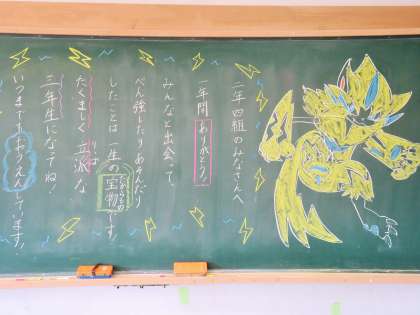 二年四組のみなさんへ
一年間 ありがとう!
みんなと出会って、
べん強したりあそんだり
したことは一生の宝物です。
たからもの
たくましく 立派な
りっぱ
三年生になってね!
いつまでもおうえんしています!